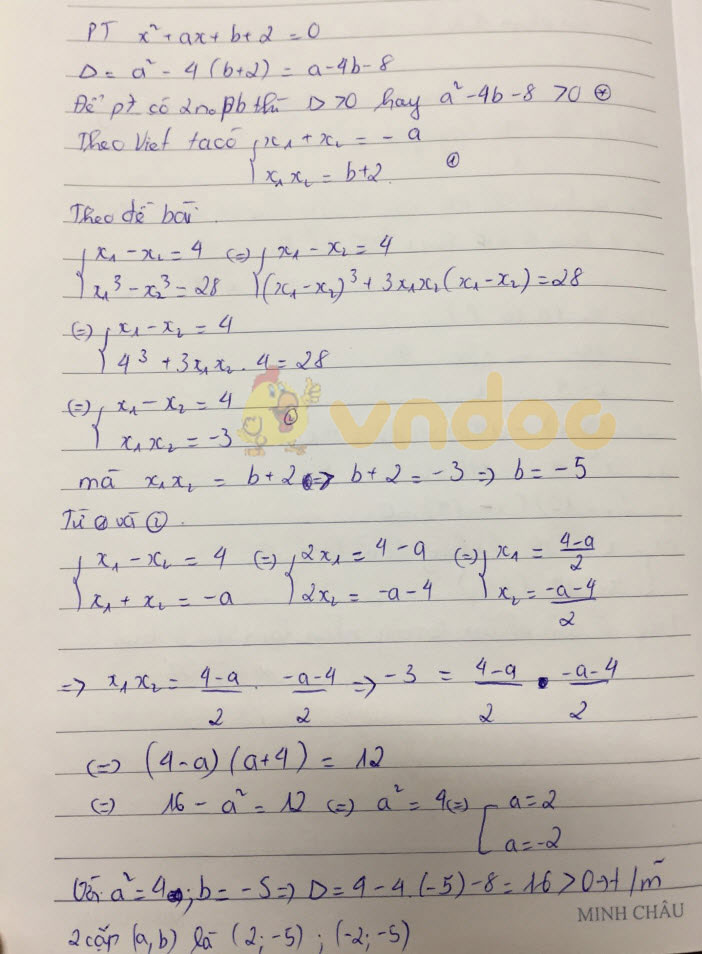 PT x² + ax + b + 2 = 0
Δ = a² - 4(b+2) = a - 4b - 8
Để pt có 2no pb thì Δ > 0 hay a² - 4b - 8 > 0 (*)
Theo Viet ta có { x₁ + x₂ = - a
x₁ x₂ = b+2 ①
Theo đề bài
{ x₁ - x₂ = 4 (=) { x₁ - x₂ = 4
x₁³ - x₂³ = 28 (x₁ - x₂)³ + 3x₁x₂(x₁ - x₂) = 28
(=) { x₁ - x₂ = 4
4³ + 3x₁x₂ . 4 = 28
(=) { x₁ - x₂ = 4
x₁ x₂ = -3 ②
vndoc
mà x₁ x₂ = b+2 => b+2 = -3 => b = -5
Từ ① và ②
{ x₁ - x₂ = 4 (=) { 2x₁ = 4 - a (=) { x₁ = (4-a)/2
x₁ + x₂ = -a 2x₂ = -a - 4 x₂ = (-a-4)/2
=> x₁x₂ = (4-a)/2 . (-a-4)/2 => -3 = (4-a)/2 . (-a-4)/2
(=) (4-a)(a+4) = 12
(=) 16 - a² = 12 (=) a² = 4 (=) [ a = 2
a = -2
Với a² = 4 ; b = -5 => Δ = 4 - 4.(-5) - 8 = 16 > 0 → t/m
MINH CHÂU
2 cặp (a, b) là (2; -5) ; (-2; -5)